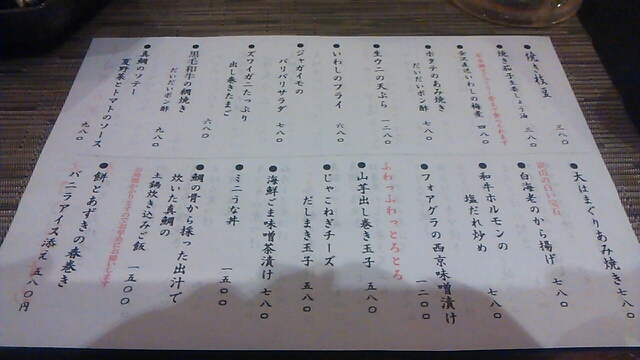 ●焼き枝豆 三八〇
●焼き茄子生姜しょう油 三八〇
●金沢直送いわしの梅煮 四八〇
●ホタテのあみ焼き
だいだいポン酢 七八〇
●生ウニの天ぷら 一二八〇
●いわしのフライ 六八〇
●ジャガイモの
パリパリサラダ 七八〇
●ズワイガニたっぷり
出し巻きたまご
●黒毛和牛の網焼き
だいだいポン酢 六八〇
●真鯛のソテー
夏野菜とトマトのソース 九八〇
●大はまぐりあみ焼き 七八〇
富山の白い宝石
●白海老のから揚げ 七八〇
●和牛ホルモンの
塩だれ炒め 七八〇
●フォアグラの西京味噌漬け 一二〇〇
ふわっふわっとろとろ
●山芋出し巻き玉子 五八〇
●じゃこねぎチーズ
だしまき玉子 五八〇
●海鮮ごま味噌茶漬け 七八〇
●ミニうな丼 一五〇〇
●鯛の骨から採った出汁で
炊いた真鯛の
土鍋炊き込みご飯 一五〇〇
お時間かかりますのでお早めにお願いします
●餅とあずきの春巻き
バニラアイス添え 五八〇円